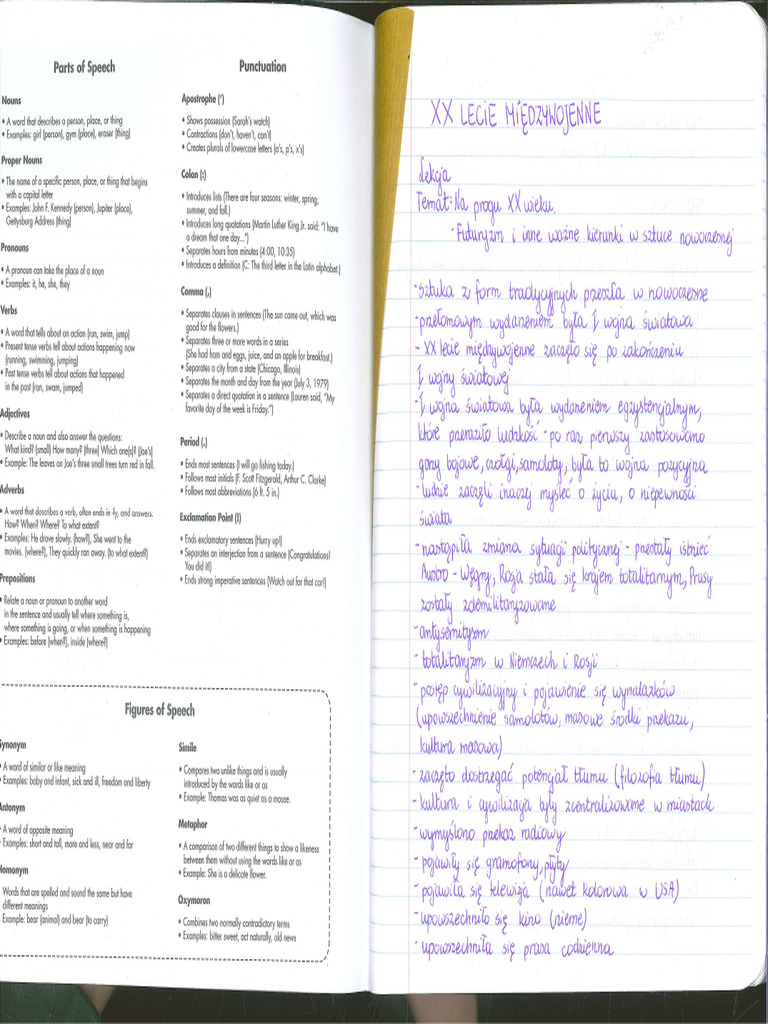 Parts of Speech
Nouns
• A word that describes a person, place, or thing
• Examples: girl (person), gym (place), eraser (thing)
Proper Nouns
• The name of a specific person, place, or thing that begins
with a capital letter
• Examples: John F. Kennedy (person), Jupiter (place),
Gettysburg Address (thing)
Pronouns
• A pronoun can take the place of a noun
• Examples: it, he, she, they
Verbs
• A word that tells about an action (run, swim, jump)
• Present tense verbs tell about actions happening now
(running, swimming, jumping)
• Past tense verbs tell about actions that happened
in the past (ran, swam, jumped)
Adjectives
• Describe a noun and also answer the questions:
What kind? (small) How many? (three) Which one(s)? (Joe's)
• Example: The leaves on Joe's three small trees turn red in fall.
Adverbs
• A word that describes a verb, often ends in -ly, and answers:
How? When? Where? To what extent?
• Examples: He drove slowly. (how?), She went to the
movies. (where?), They quickly ran away. (to what extent?)
Prepositions
• Relate a noun or pronoun to another word
in the sentence and usually tell where something is,
where something is going, or when something is happening
• Examples: before (when?), inside (where?)
Punctuation
Apostrophe (')
• Shows possession (Sarah's watch)
• Contractions (don't, haven't, can't)
• Creates plurals of lowercase letters (a's, p's, x's)
Colon (:)
• Introduces lists (There are four seasons: winter, spring,
summer, and fall.)
• Introduces long quotations (Martin Luther King Jr. said: "I have
a dream that one day...")
• Separates hours from minutes (4:00, 10:35)
• Introduces a definition (C: The third letter in the Latin alphabet.)
Comma (,)
• Separates clauses in sentences (The sun came out, which was
good for the flowers.)
• Separates three or more words in a series
(She had ham and eggs, juice, and an apple for breakfast.)
• Separates a city from a state (Chicago, Illinois)
• Separates the month and day from the year (July 3, 1979)
• Separates a direct quotation in a sentence (Lauren said, "My
favorite day of the week is Friday.")
Period (.)
• Ends most sentences (I will go fishing today.)
• Follows most initials (F. Scott Fitzgerald, Arthur C. Clarke)
• Follows most abbreviations (6 ft. 5 in.)
Exclamation Point (!)
• Ends exclamatory sentences (Hurry up!)
• Separates an interjection from a sentence (Congratulations!
You did it!)
• Ends strong imperative sentences (Watch out for that car!)
Figures of Speech
Synonym
• A word of similar or like meaning
• Examples: baby and infant, sick and ill, freedom and liberty
Antonym
• A word of opposite meaning
Examples: short and tall, more and less, near and far
Homonym
Words that are spelled and sound the same but have
different meanings
Example: bear (animal) and bear (to carry)
Simile
• Compares two unlike things and is usually
introduced by the words like or as
• Example: Thomas was as quiet as a mouse.
Metaphor
• A comparison of two different things to show a likeness
between them without using the words like or as
• Example: She is a delicate flower.
Oxymoron
• Combines two normally contradictory terms
• Examples: bitter sweet, act naturally, old news
XX LECIE MIĘDZYWOJENNE
Lekcja
Temat: Na progu XX wieku.
- Futuryzm i inne ważne kierunki w sztuce nowoczesnej
- sztuka z form tradycyjnych przeszła w nowoczesne
- przełomowym wydarzeniem była I wojna światowa
- XX lecie międzywojenne zaczęło się po zakończeniu
I wojny światowej
- I wojna światowa była wydarzeniem egzystencjalnym,
które przeraziło ludzkość - po raz pierwszy zastosowano
gazy bojowe, czołgi, samoloty, była to wojna pozycyjna
- ludzie zaczęli inaczej myśleć o życiu, o niepewności
świata
- nastąpiła zmiana sytuacji politycznej - przestały istnieć
Austro - Węgry, Rosja stała się krajem totalitarnym, Prusy
zostały zdemilitaryzowane
- antysemityzm
- totalitaryzm w Niemczech i Rosji
- postęp cywilizacyjny i pojawienie się wynalazków
(upowszechnienie samolotów, masowe środki przekazu,
kultura masowa)
- zaczęto dostrzegać potencjał tłumu (filozofia tłumu)
- kultura i cywilizacja były zcentralizowane w miastach
- wymyślono przekaz radiowy
- pojawiły się gramofony, płyty
- pojawiła się telewizja (nawet kolorowa w USA)
- upowszechniło się kino (nieme)
- upowszechniła się prasa codzienna